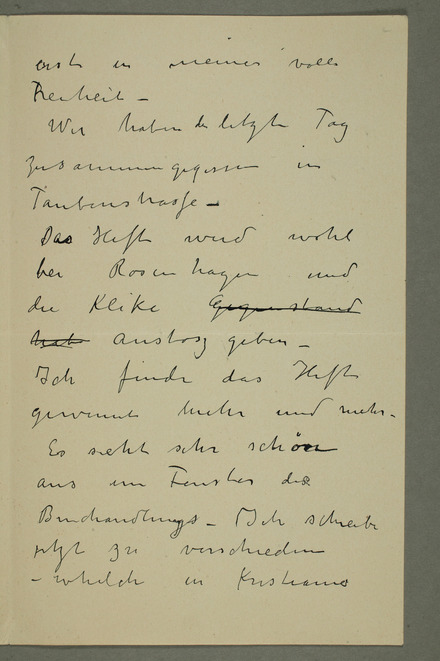 erst in meiner volle
Freiheit –
Wir haben der letzte Tag
zusammengegessen in
Taubenstrasse –
Das Heft wird wohl
bei Rosenhagen und
die Klike Gegenstand
hat anstosz geben –
Ich finde das Heft
gewinnt mehr und mehr –
Es sieht sehr schön
aus im Fenster der
Buchhandlungs – Ich schreibe
jetzt zu verschiedene
– in Kristiania